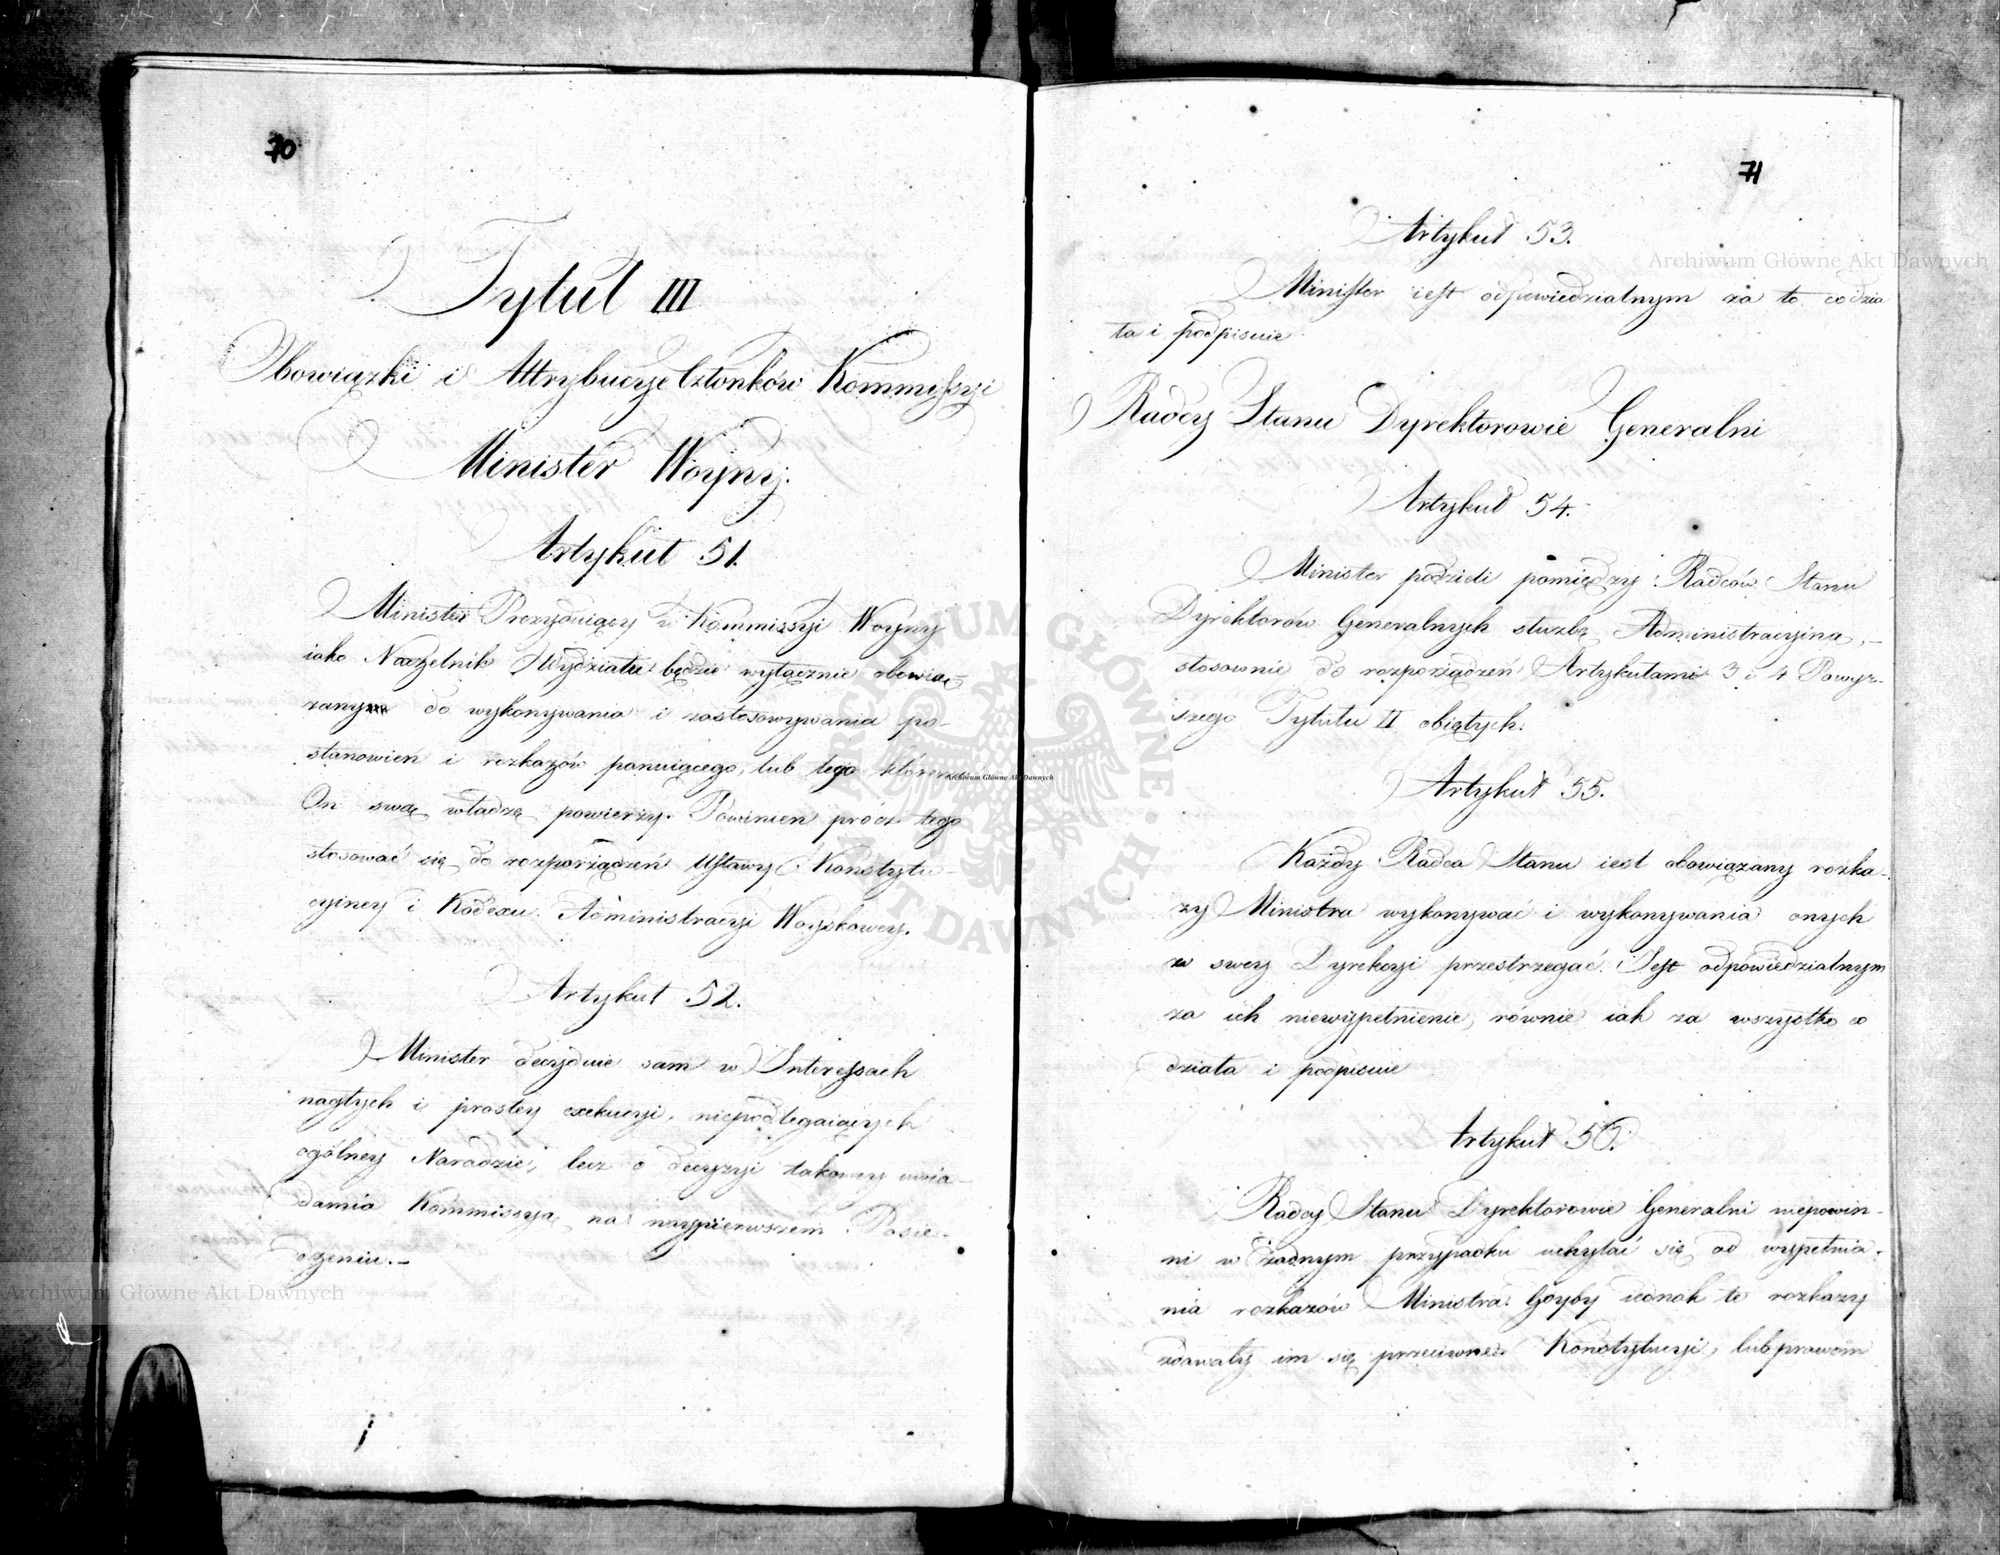 70
Tytuł III
Obowiązki i Attrybucye Członków Kommissyi
Minister Woyny.
Artykuł 51.
Minister Prezyduiący w Kommissyi Woyny
iako Naczelnik Wydziału będzie wyłącznie obowią-
zanym do wykonywania i zastosowywania po-
stanowień i rozkazów panuiącego, lub tego któremu
On swą władzę powierzy. Powinien prócz tego
stosować się do rozporządzeń Ustawy Konstytu-
cyiney i Kodexu Administracyi Woyskowey.
Artykuł 52.
Minister decyduie sam w Interessach
nagłych i prostey exekucyi, niepodlegaiących
ogólney Naradzie, lecz o decyzyi takowey uwia-
damia Kommissyą na naypierwszem Posie-
dzeniu.-
71
Artykuł 53.
Minister iest odpowiedzialnym za to, co dzia
ła i podpisuie
Radcy Stanu Dyrektorowie Generalni
Artykuł 54.
Minister podzieli pomiędzy Radców Stanu
Dyrektorów Generalnych służbę Administracyina,-
stosownie do rozporządzeń Artykułami 3 i 4 Powyż-
szego Tytułu II obiętych.
Artykuł 55.
Każdy Radca Stanu iest obowiązany rozka-
zy Ministra wykonywać i wykonywania onych
w swey Dyrekcyi przestrzegać. Jest odpowiedzialnym
za ich niewypełnienie, równie iak za wszystko co
działa i podpisuie
Artykuł 56.
Radcy Stanu Dyrektorowie Generalni niepowin-
ni w żadnym przypadku uchylać się od wypełnia-
nia rozkazów Ministra. Gdyby iednak te rozkazy
zdawały im się przeciwne Konstytucyi, lub prawom
Archiwum Główne Akt Dawnych
Archiwum Główne Akt Dawnych
Archiwum Główne Akt Dawnych
ARCHIWUM GŁÓWNE AKT DAWNYCH